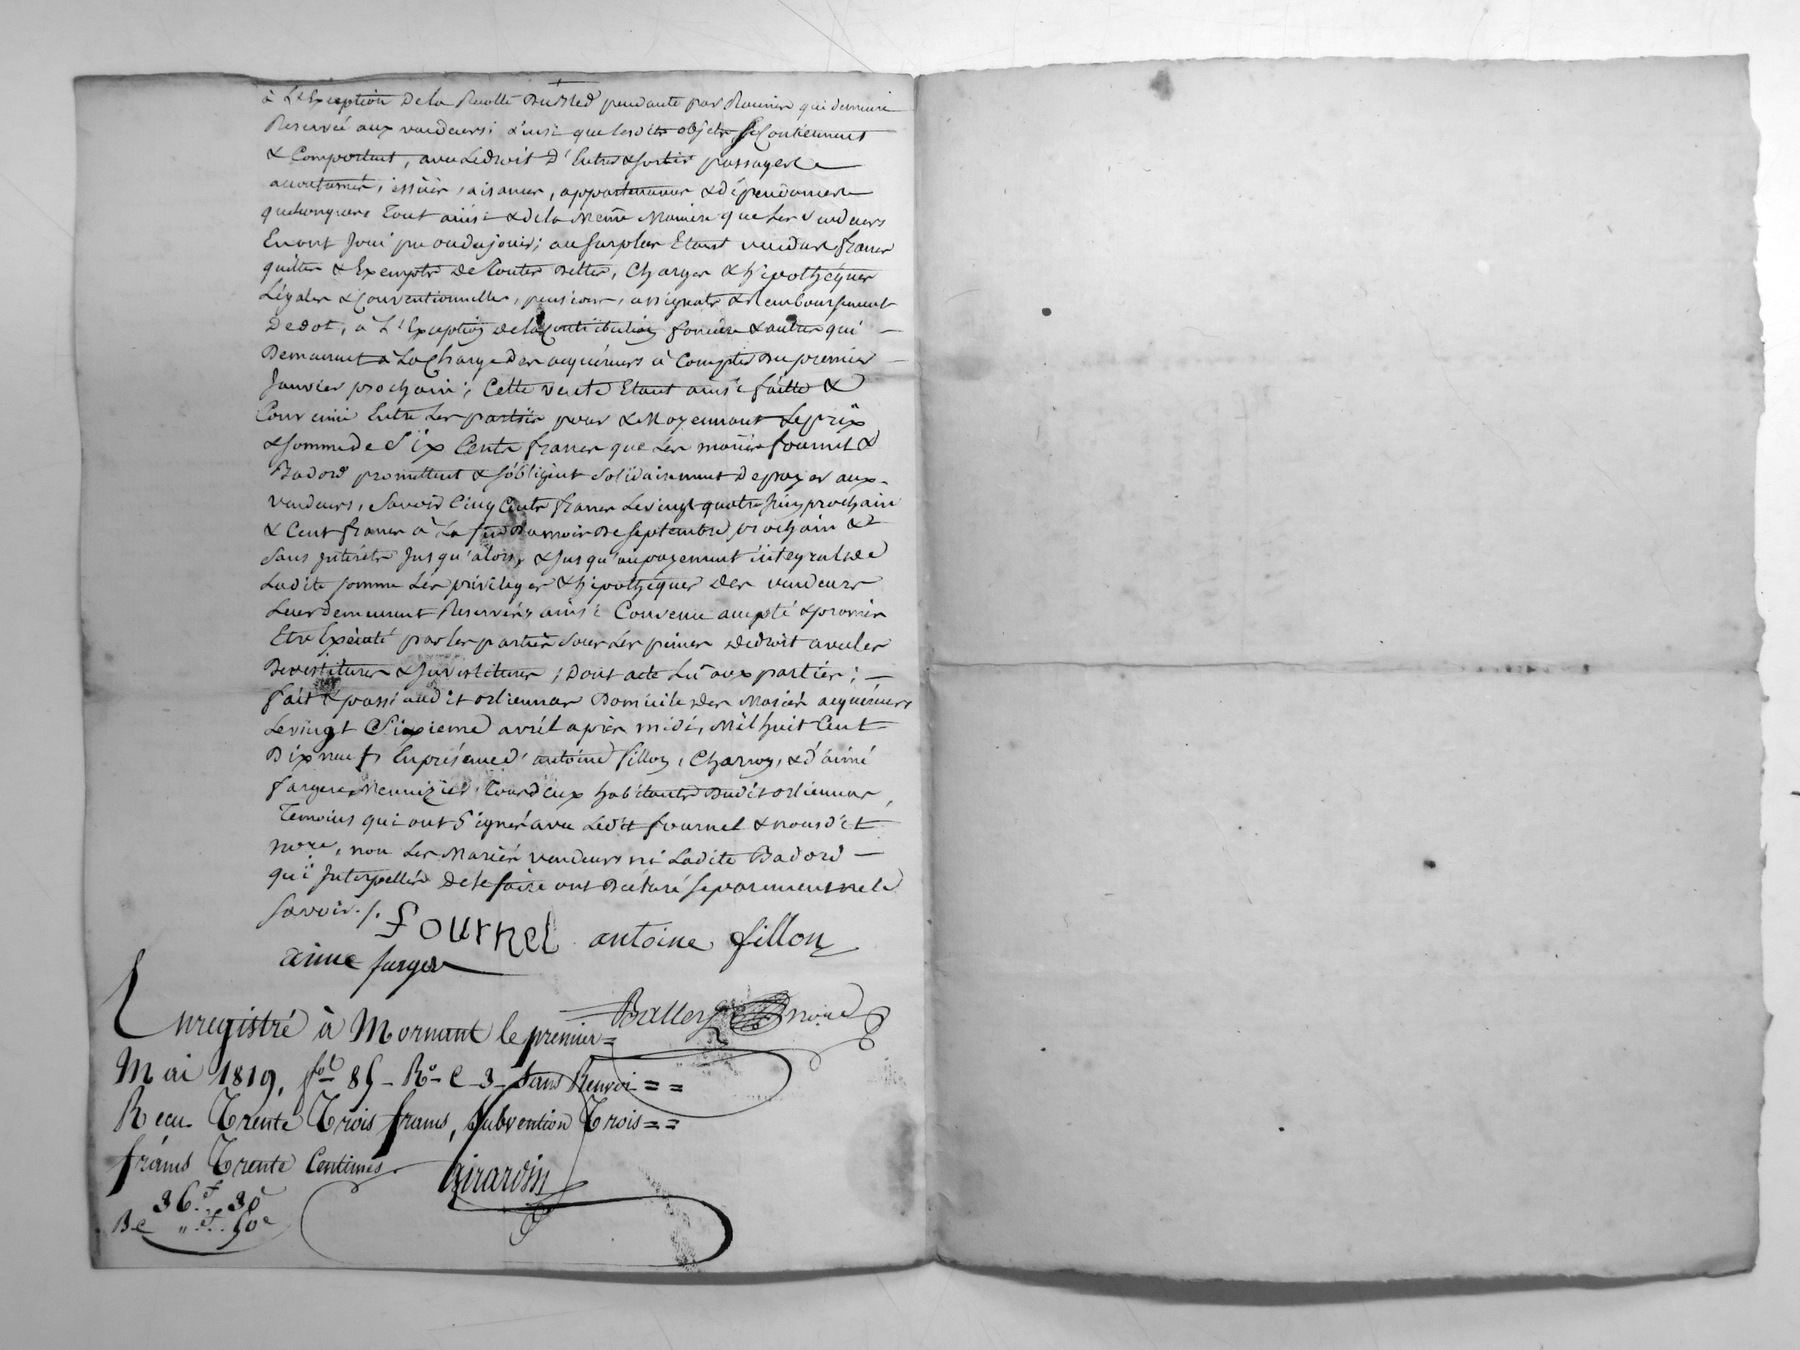 à L'Exception De la Recolte Du Bled pendante par Racines qui demeure
Reservée aux vendeurs; ainsi que lesdits objets se Contiennent
& Comportent, avec Ledroit d'Entrer & sortir passages
accoutumés, aisances, appartenances & dépendances
quelconques Tout ainsi & de la Même Maniere que Les Vendeurs
En ont Joui pu ou du jouir; au surplus Etant vendus francs
quittes & Exempts de Toutes Dettes, Charges & hipothéques
Légales & Conventionnelles, pensions, assignats & Remboursement
De dot, à L'Exception de la Contribution fonciere & autres qui —
Demeurent à La Charge des acquéreurs à Compter Du premier —
Janvier prochain; Cette vente Etant ainsi faitte &
Convenue Entre Les parties pour & Moyennant Le prix
& somme de Six Cents francs que Les mariés fournel &
Badord promettent & s'obligent solidairement De payer aux
vendeurs, Savoir Cinq Cents francs Le vingt quatre Juin prochain
& Cent francs à La fin Du mois De septembre prochain &
Sans Intérêts Jusqu'alors, & Jusqu'au payement intégral de
Ladite somme Les privileges & hipothéques des vendeurs
Leur demeurent Reservés; ainsi Convenu accepté & promis
Etre Exécuté par les parties sous Les peines de droit avec les
Devestitures & Investitures; Dont acte Lû aux parties; —
fait & passé audit orliennas Domicile des Mariés acquéreurs
Le vingt Sixieme avril après midi, Mil huit Cent
Dix neuf, En présence d'antoine fillon, Charron, & d'aimé
farges Menuizier, Tous deux habitants Dudit orliennas,
Temoins qui ont Signé avec Ledit fournel & nousdit
nore, non Les Mariés vendeurs ni Ladite Badord —
qui Interpellés de le faire ont Déclaré séparément ne le
savoir./.
fournel antoine fillon
aimé farges
Enregistré à Mornant le premier =
Mai 1819, fol 85 Ro C 3 Sans Renvoi = =
Recu Trente Trois francs, Subvention Trois = =
francs Trente Centimes.
Girardin
36f. 30c
De „f. 50c